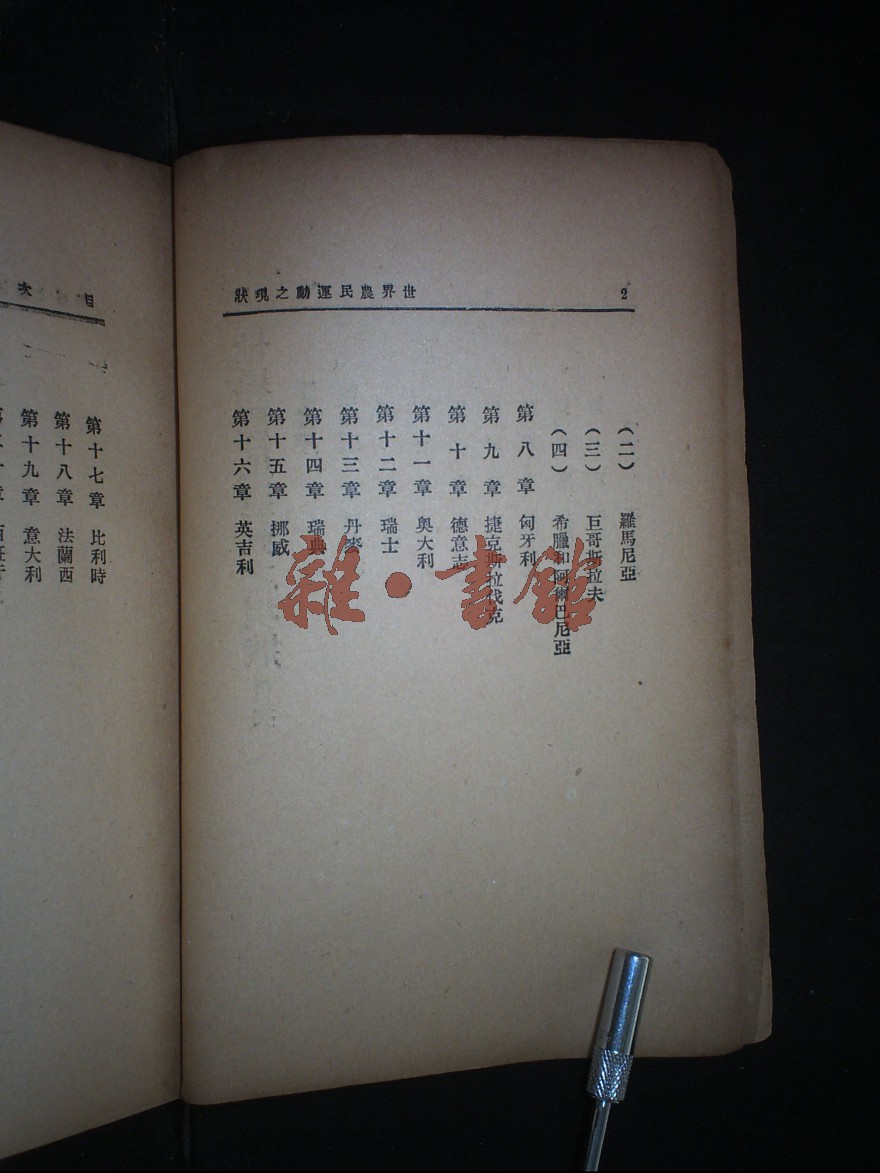 世界農民運動之現狀 2
(二) 羅馬尼亞
(三) 巨哥斯拉夫
(四) 希臘和阿爾巴尼亞
第八章 匈牙利
第九章 捷克斯拉伐克
第十章 德意志
第十一章 奧大利
第十二章 瑞士
第十三章 丹麥
第十四章 瑞典
第十五章 挪威
第十六章 英吉利
目次
第十七章 比利時
第十八章 法蘭西
第十九章 意大利
雜·書館